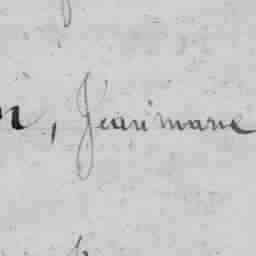 , Jean marie